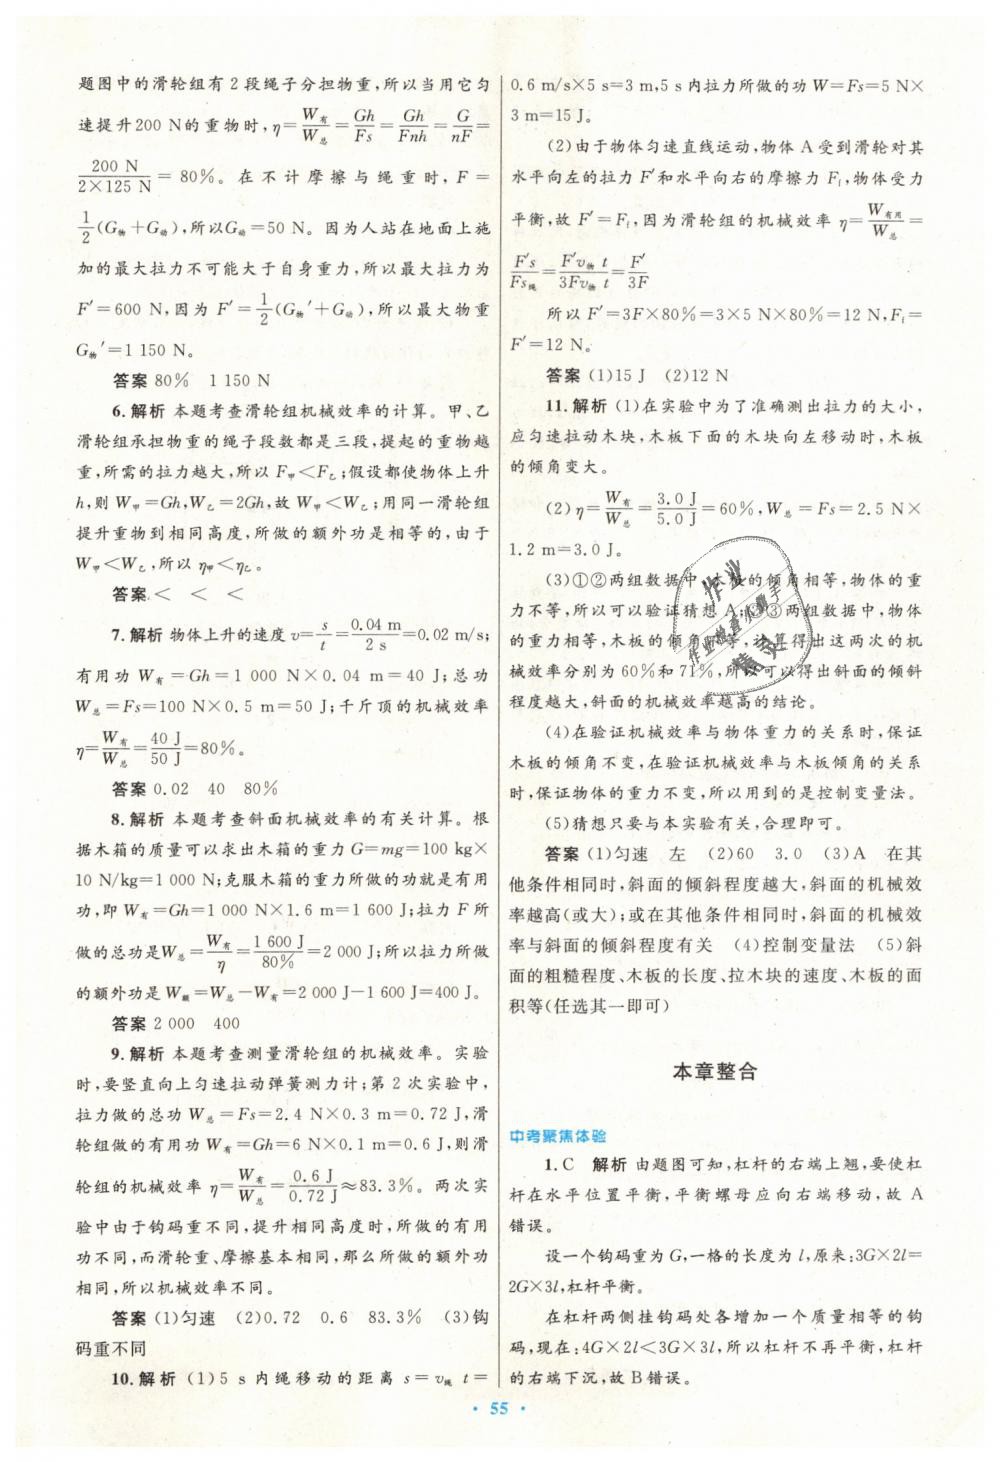 题图中的滑轮组有2段绳子分担物重,所以当用它匀
速提升200 N的重物时,η=W有/W总=Gh/Fs=Gh/Fnh=G/nF=
200 N/2×125 N=80%。在不计摩擦与绳重时,F=
1/2(G物+G动),所以G动=50 N。因为人站在地面上施
加的最大拉力不可能大于自身重力,所以最大拉力为
F′=600 N,因为 F′=1/2(G物′+G动),所以最大物重
G物′=1 150 N。
答案 80% 1 150 N
6.解析 本题考查滑轮组机械效率的计算。甲、乙
滑轮组承担物重的绳子段数都是三段,提起的重物越
重,所需的拉力越大,所以 F甲<F乙;假设都使物体上升
h,则 W甲=Gh,W乙=2Gh,故 W甲<W乙;用同一滑轮组
提升重物到相同高度,所做的额外功是相等的,由于
W甲<W乙,所以 η甲<η乙。
答案 < < <
7.解析 物体上升的速度 v=s/t=0.04 m/2 s=0.02 m/s;
有用功 W有=Gh=1 000 N×0.04 m=40 J;总功
W总=Fs=100 N×0.5 m=50 J;千斤顶的机械效率
η=W有/W总=40 J/50 J=80%。
答案 0.02 40 80%
8.解析 本题考查斜面机械效率的有关计算。根
据木箱的质量可以求出木箱的重力 G=mg=100 kg×
10 N/kg=1 000 N;克服木箱的重力所做的功就是有用
功,即 W有=Gh=1 000 N×1.6 m=1 600 J;拉力 F 所
做的总功是W总=W有/η=1 600 J/80%=2 000 J;所以拉力所做
的额外功是 W额=W总-W有=2 000 J-1 600 J=400 J。
答案 2 000 400
9.解析 本题考查测量滑轮组的机械效率。实验
时,要竖直向上匀速拉动弹簧测力计;第2次实验中,
拉力做的总功 W总=Fs=2.4 N×0.3 m=0.72 J,滑
轮组做的有用功 W有=Gh=6 N×0.1 m=0.6 J,则滑
轮组的机械效率 η=W有/W总=0.6 J/0.72 J≈83.3%。两次实
验中由于钩码重不同,提升相同高度时,所做的有用
功不同,而滑轮重、摩擦基本相同,那么所做的额外功
相同,所以机械效率不同。
答案 (1)匀速 (2)0.72 0.6 83.3% (3)钩
码重不同
10.解析 (1)5 s 内绳移动的距离 s=v绳 t=
0.6 m/s×5 s=3 m,5 s内拉力所做的功 W=Fs=5 N×
3 m=15 J。
(2)由于物体匀速直线运动,物体 A 受到滑轮对其
水平向左的拉力 F′和水平向右的摩擦力 Ff,物体受力
平衡,故 F′=Ff,因为滑轮组的机械效率 η=W有用/W总=
F′s/Fs绳=F′v物 t/3Fv物 t=F′/3F
所以 F′=3F×80%=3×5 N×80%=12 N,Ff=
F′=12 N。
答案 (1)15 J (2)12 N
11.解析 (1)在实验中为了准确测出拉力的大小,
应匀速拉动木块,木板下面的木块向左移动时,木板
的倾角变大。
(2)η=W有/W总=3.0 J/5.0 J=60%,W总=Fs=2.5 N×
1.2 m=3.0 J。
(3)①②两组数据中,木板的倾角相等,物体的重
力不等,所以可以验证猜想 A;②③两组数据中,物体
的重力相等,木板的倾角不等,计算得出这两次的机
械效率分别为60%和71%,所以可以得出斜面的倾斜
程度越大,斜面的机械效率越高的结论。
(4)在验证机械效率与物体重力的关系时,保证
木板的倾角不变,在验证机械效率与木板倾角的关系
时,保证物体的重力不变,所以用到的是控制变量法。
(5)猜想只要与本实验有关,合理即可。
答案 (1)匀速 左 (2)60 3.0 (3)A 在其
他条件相同时,斜面的倾斜程度越大,斜面的机械效
率越高(或大);或在其他条件相同时,斜面的机械效
率与斜面的倾斜程度有关 (4)控制变量法 (5)斜
面的粗糙程度、木板的长度、拉木块的速度、木板的面
积等(任选其一即可)
本章整合
中考聚焦体验
1.C 解析 由题图可知,杠杆的右端上翘,要使杠
杆在水平位置平衡,平衡螺母应向右端移动,故 A
错误。
设一个钩码重为 G,一格的长度为 l,原来:3G×2l=
2G×3l,杠杆平衡。
在杠杆两侧挂钩码处各增加一个质量相等的钩
码,现在:4G×2l<3G×3l,所以杠杆不再平衡,杠杆
的右端下沉,故B错误。
· 55 ·